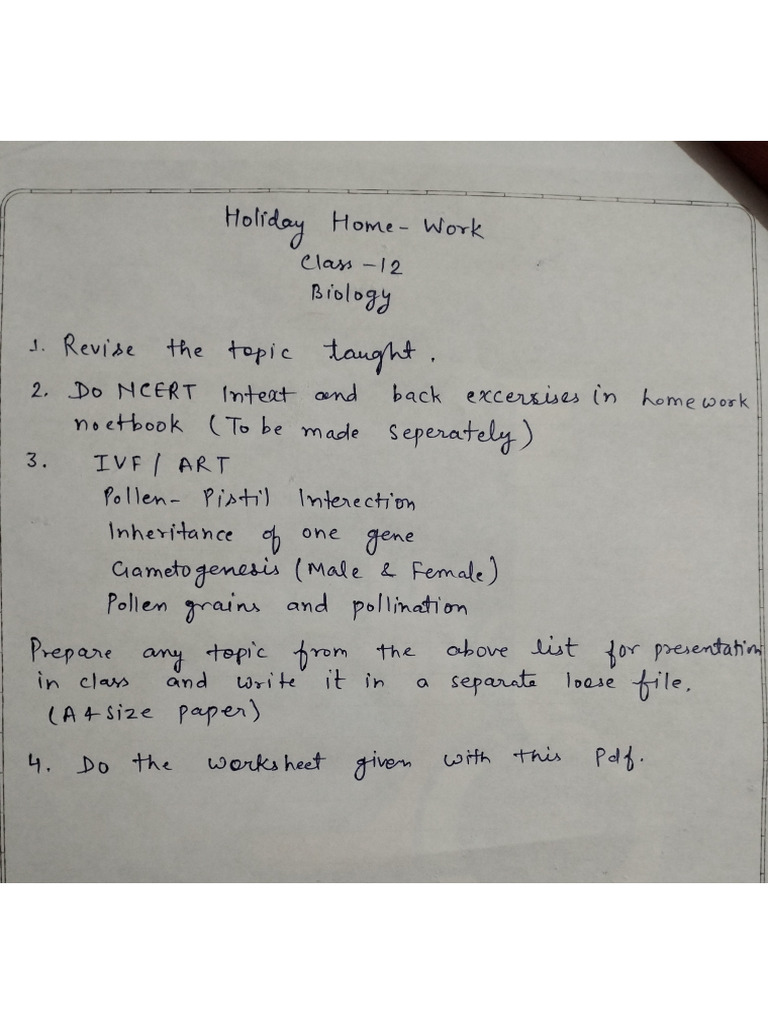 Holiday Home-Work
Class-12
Biology
1. Revise the topic taught.
2. Do NCERT Intext and back excersises in homework
noetbook (To be made seperately)
3. IVF/ART
Pollen-Pistil Interection
Inheritance of one gene
Gametogenesis (Male & Female)
Pollen grains and pollination
Prepare any topic from the above list for presentation
in class and write it in a separate loose file.
(A4 size paper)
4. Do the worksheet given with this pdf.